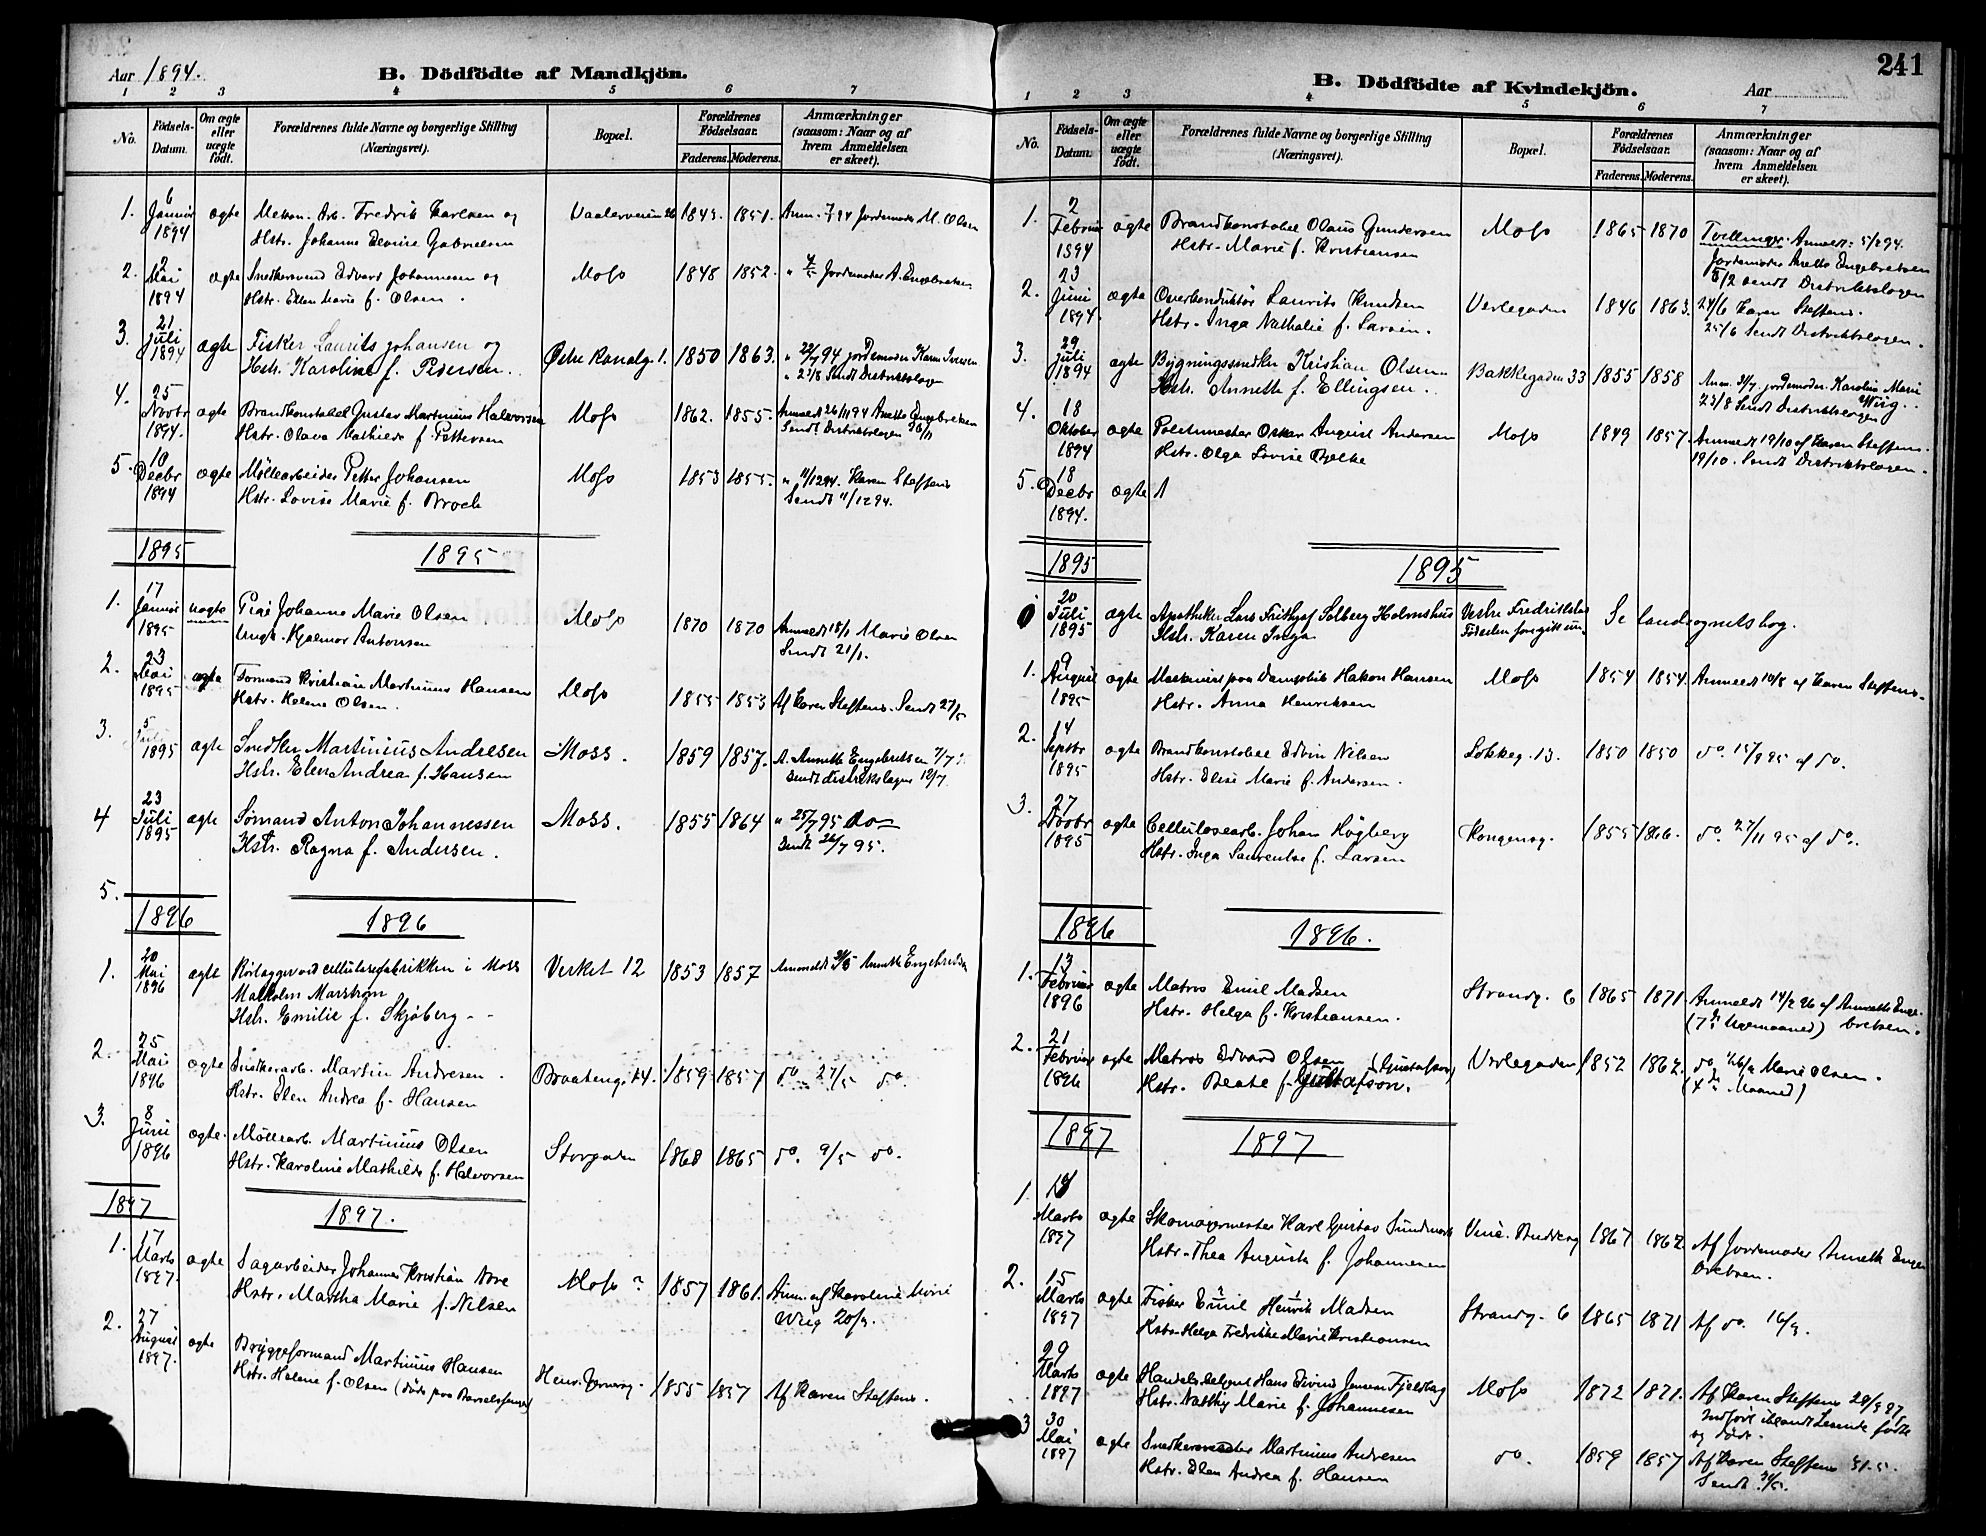 Aar 1894.
B. Dödfödte af Mandkjön.
1 2 3 4 5 6 7
No.
Födsels-Datum.
Om ægte eller uægte födt.
Forældrenes fulde Navne og borgerlige Stilling
(Næringsvei).
Bopæl.
Forældrenes Födselsaar.
Faderens. Moderens.
Anmærkninger
(saasom: Naar og af
hvem Anmeldelsen
er skeet).
1. 6 Januar 1894 ægte Fredrik Karlsen og Vaalerveien 1843. 1851. Anm. 7/1 94 Jordemoder M. Olsen
Hstr. Johanne Gabrielsen
2. 2 Mai 1894 ægte Snedkersvend Edvard Johannesen og Moss 1848 1852. " Jordemoder A. Engebretsen
Hstr. Ellen Marie f. Olsen.
3. 21 Juli 1894 ægte Fisker Laurits Johansen og Østre Kanalg. 1. 1850 1863. " 22/7 94 Jordemoder Karen Iversen
Hstr. Karoline f. Pedersen. " 23/8 Sendt Distriktslæge
4. 25 Novbr 1894. ægte Brandkonstabel Gustav Martinius Halvorsen Moss 1862. 1855. Anmeldt 26/11 94 Anette Engebretsen
Hstr. Olava Mathilde f. Pettersen Sendt Distriktslægen 26/11
5. 10 Decbr 1894 ægte Møllearbeider Petter Johansen Moss 1853 1855. " 11/12 94. Karen Steffens
Hstr. Lovise Marie f. Broch Sendt 11/12 94.
1895 1895
1. 17 Januar 1895 uægte Pige Johanne Marie Olsen Moss 1870 1870 Anmeldt 18/1 Marie Olsen
Ungk. Hjalmar Antonsen Sendt 21/1.
2. 23 Mai 1895 ægte Formand Kristian Martinius Hansen Moss 1855 1853 Af Karen Steffens. Sendt 27/5
Hstr. Helene Olsen.
3. 5 Juli 1895 ægte Snedker Martinius Andresen Moss. 1859 1857. A. Annette Engebretsen 7/7
Hstr. Elen Andrea f. Hansen Sendt distriktslægen 12/7
4 23 Juli 1895 ægte Sømand Anton Johannessen Moss. 1855 1864 " 25/7 95 do
Hstr. Ragna f. Andersen. Sendt 26/7 95.
5.
1896 1896
1. 20 Mai 1896 ægte Rørlægger ved cellulosefabrikken i Moss Verket 12 1853 1857 Anmeldt Annette Engebretsen
Malkolm Marstrøm
Hstr. Emilie f. Skjøberg
2. 25 Mai 1896 ægte Snedkerarb. Martin Andresen. Braateng. 14. 1859 1857 do 27/5 do.
Hstr. Elen Andrea f. Hansen
3. 8 Juni 1896 ægte. Møllearb. Martinius Olsen Storgaden 1868 1865 do. 9/5 do.
Hstr. Karoline Mathilde f. Halvorsen
1897 1897.
1. 17 Marts 1897. ægte Sagarbeider Johannes Kristian Aore Moss ? 1857 1861. Anm. af Karoline Marie
Hstr. Martha Marie f. Nilsen Wiig
2. 27 August 1897. ægte Bryggeformand Martinius Hansen Henr. Gernersg. 1855 1857 Af Karen Steffens.
Hstr. Helene f. Olsen (døde paa Barselseng)
241
B. Dödfödte af Kvindekjön. Aar
1 2 3 4 5 6 7
No.
Födsels-Datum.
Om ægte eller uægte födt.
Forældrenes fulde Navne og borgerlige Stilling
(Næringsvei).
Bopæl.
Forældrenes Födselsaar.
Faderens. Moderens.
Anmærkninger
(saasom: Naar og af
hvem Anmeldelsen
er skeet).
1. 2 Februar 1894 ægte Brandkonstabel Olaus Gundersen Moss 1865 1870 Tvillinger. Anmeldt 5/2 94.
Hstr. Marie f. Kristiansen Jordemoder Anette Engebretsen
8/2 sendt Distriktslægen
2. 23 Juni 1894. ægte Overkonduktør Laurits Knudsen Værlegaden 1846 1863. 24/6 Karen Steffens.
Hstr. Inga Nathalie f. Larsen. 25/6 Sendt Distriktslægen.
3. 29 Juli 1894 ægte Bygningssnedker Kristian Olsen Bakkegaden 33 1855 1858 Anm. 31/7 jordemoder. Karoline Marie Wiig.
Hstr. Annette f. Ellingsen. 23/8 Sendt Distriktslægen
4. 18 Oktober 1894 ægte Politimester Oskar August Andersen Moss 1849 1857. Anmeldt 19/10 af Karen Steffens.
Hstr. Olga Lovise Bjelke 19/10. Sendt Distriktslægen.
5. 18 Decbr 1894. ægte
1895 1895
20 Juli 1895 ægte Apotheker Lars Frithjof Solberg Holmshus Vestre Fredrikstad Se landsognets bog.
Hstr. Karen Inga
1. 9 August 1895 ægte Maskinist paa Dampskib Hakon Hansen Moss 1854 1854. Anmeldt 10/8 af Karen Steffens.
Hstr. Anna Henriksen
2. 14 Septbr 1895 ægte Brandkonstabel Edvin Nilsen Løkkeg. 13. 1850 1850 do. 15/9 95 af do.
Hstr. Elise Marie f. Andersen.
3. 27 Novbr 1895 ægte Cellulosearb. Johan Högberg Kongensg. 1855 1866. do. 27/11 95 af do.
Hstr. Inga Laurentse f. Larsen
1896 1896.
1. 13 Februar 1896 ægte Matros Emil Madsen Strandg. 6 1865 1871. Anmeldt 14/2 96 af Annette Enge-
Hstr. Helga f. Kristiansen. (7de Maaned) bretsen.
2. 21 Februar 1896 ægte Matros Edvard Olsen (Gustafson) Værlegaden 1852 1862. do Marie Olsen.
Hstr. Beate f. Gustafson. (4de Maaned)
1897 1897
1. Marts 1897 ægte Skomagermester Karl Gustav Sundmark 1867 1862. Af Jordemoder Annette Enge-
Hstr. Thea Augusta f. Johannesen bretsen.
2. 15 Marts 1897 ægte Fisker Emil Henrik Madsen Strandg. 6 1865 1871 Af do.
Hstr. Helga Fredrikke Marie Kristiansen
29 Marts 1897 ægte Handelsbetjent Hans Eivind Jensen Fjeldberg Moss 1872 1871. Af Karen Steffens
Hstr. Marie f. Johannesen Indført iblandt Levende fødte
og døde.
3 30 Mai 1897 ægte Snedkermester Martinius Andresen do. 1859 1857 Af Karen Steffens 31.5.
Hstr. Elen Andrea f. Hansen Sendt 31/5.